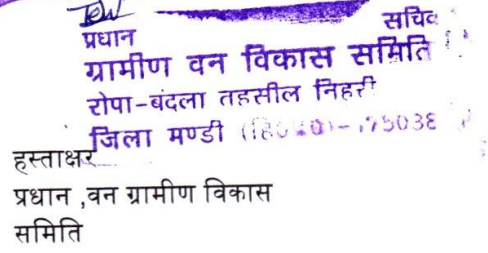 प्रधान सचिव
ग्रामीण वन विकास समिति
रोपा-बंदला तहसील निहरी
जिला मण्डी (हि0प्र0)-175038
हस्ताक्षर
प्रधान ,वन ग्रामीण विकास
समिति